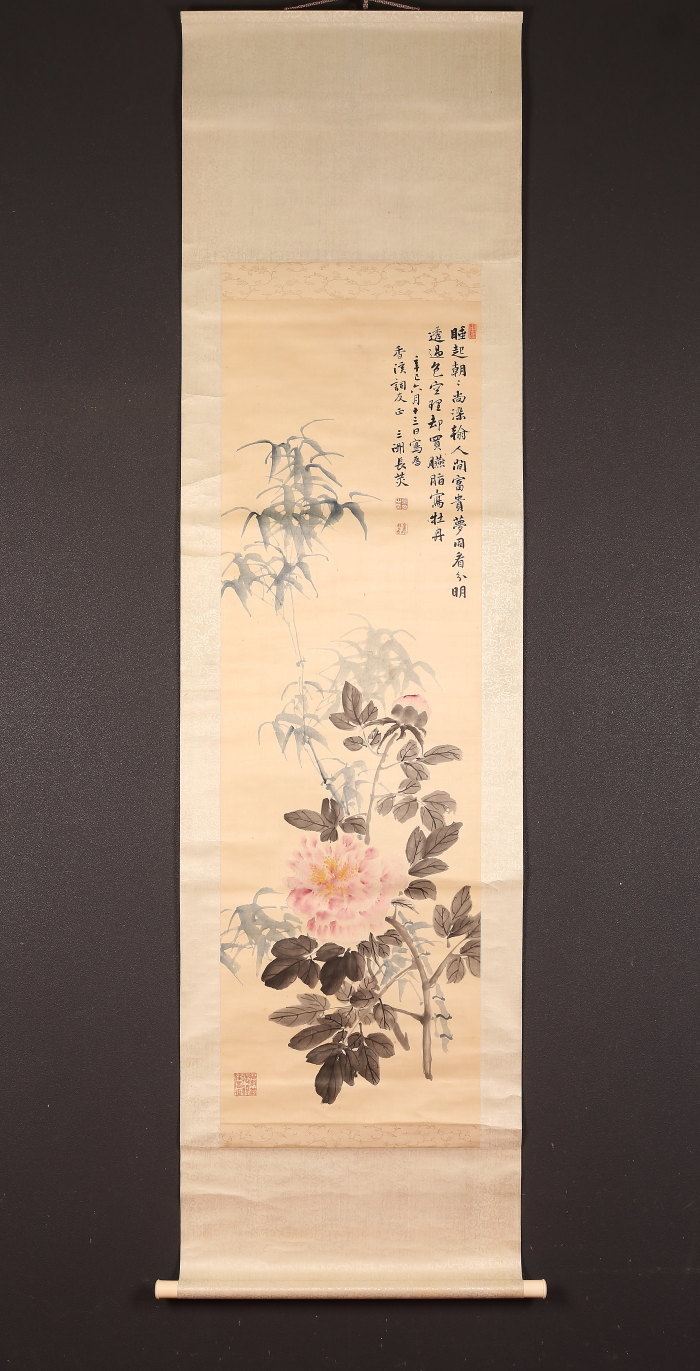 睡起朝〻尚染翰人間富貴夢同看分明
透過色空理却買臙脂寫牡丹
辛巳六月十三日寫為
香溪詞友正 三洲長炗